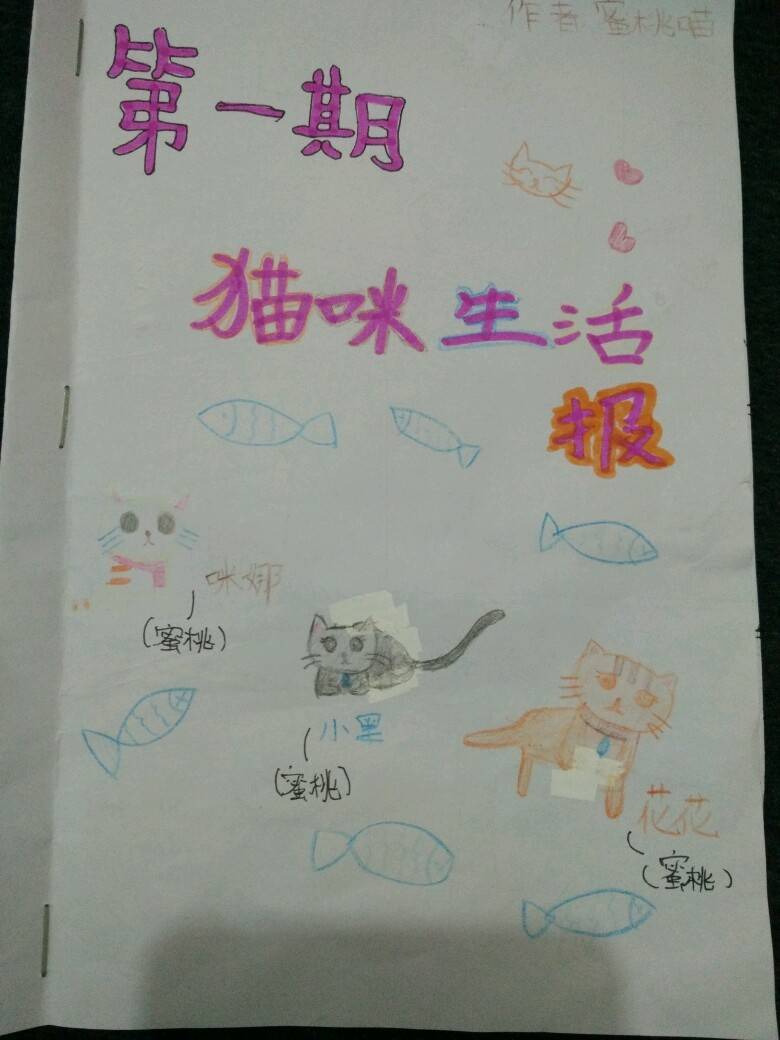 作者蜜桃喵
第一期
猫咪生活
报
咪娜
(蜜桃)
小黑
(蜜桃)
花花
(蜜桃)